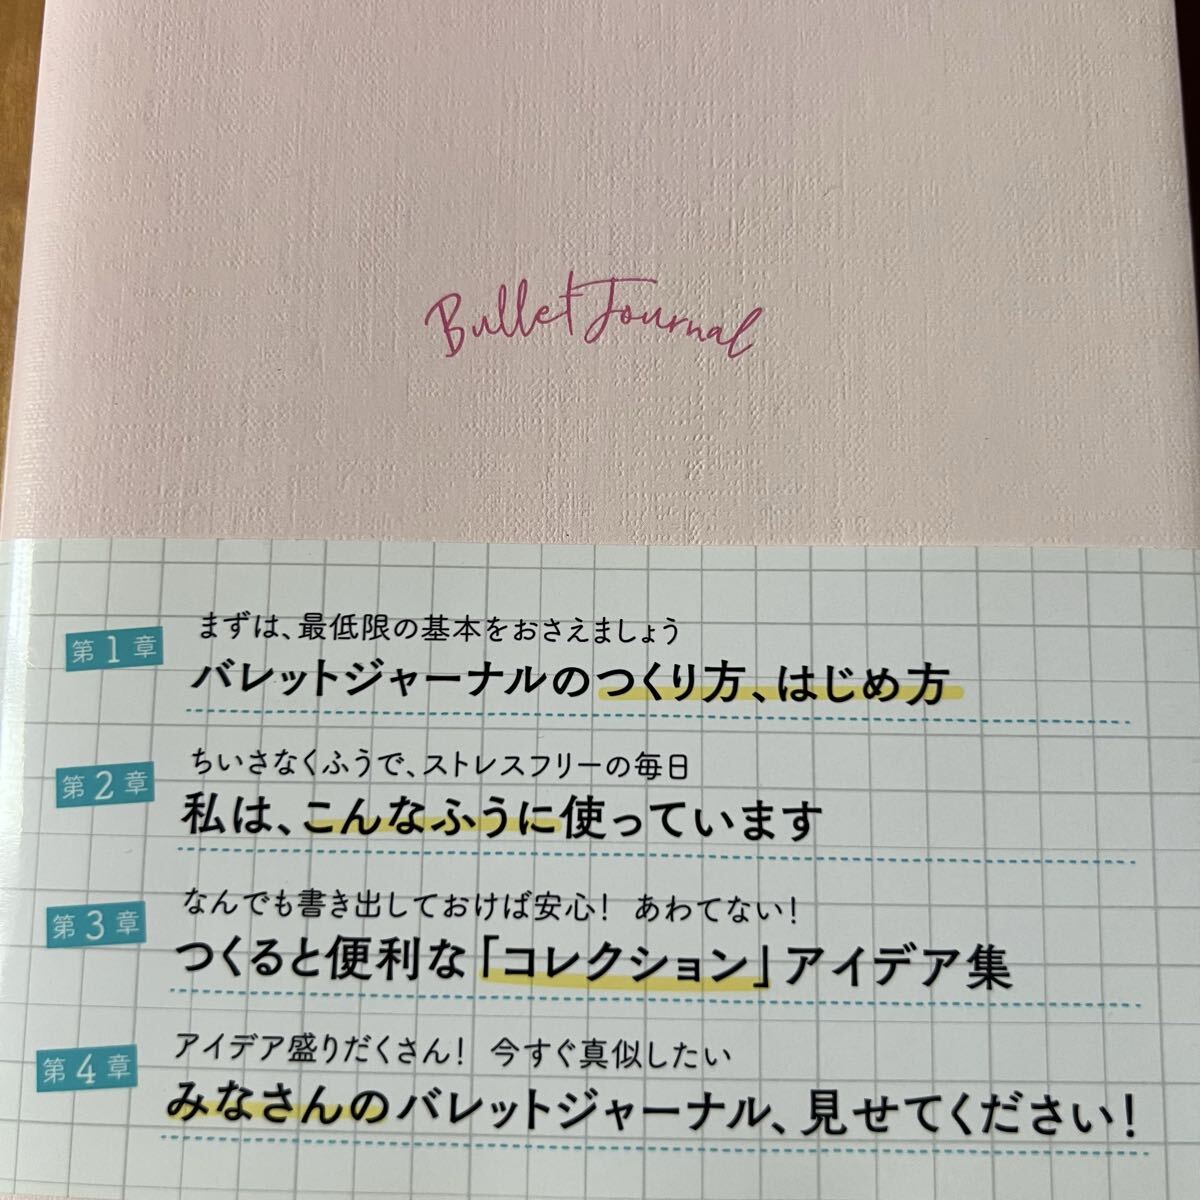 Bullet Journal
第1章
まずは、最低限の基本をおさえましょう
バレットジャーナルのつくり方、はじめ方
第2章
ちいさなくふうで、ストレスフリーの毎日
私は、こんなふうに使っています
第3章
なんでも書き出しておけば安心！ あわてない！
つくると便利な「コレクション」アイデア集
第4章
アイデア盛りだくさん！ 今すぐ真似したい
みなさんのバレットジャーナル、見せてください！